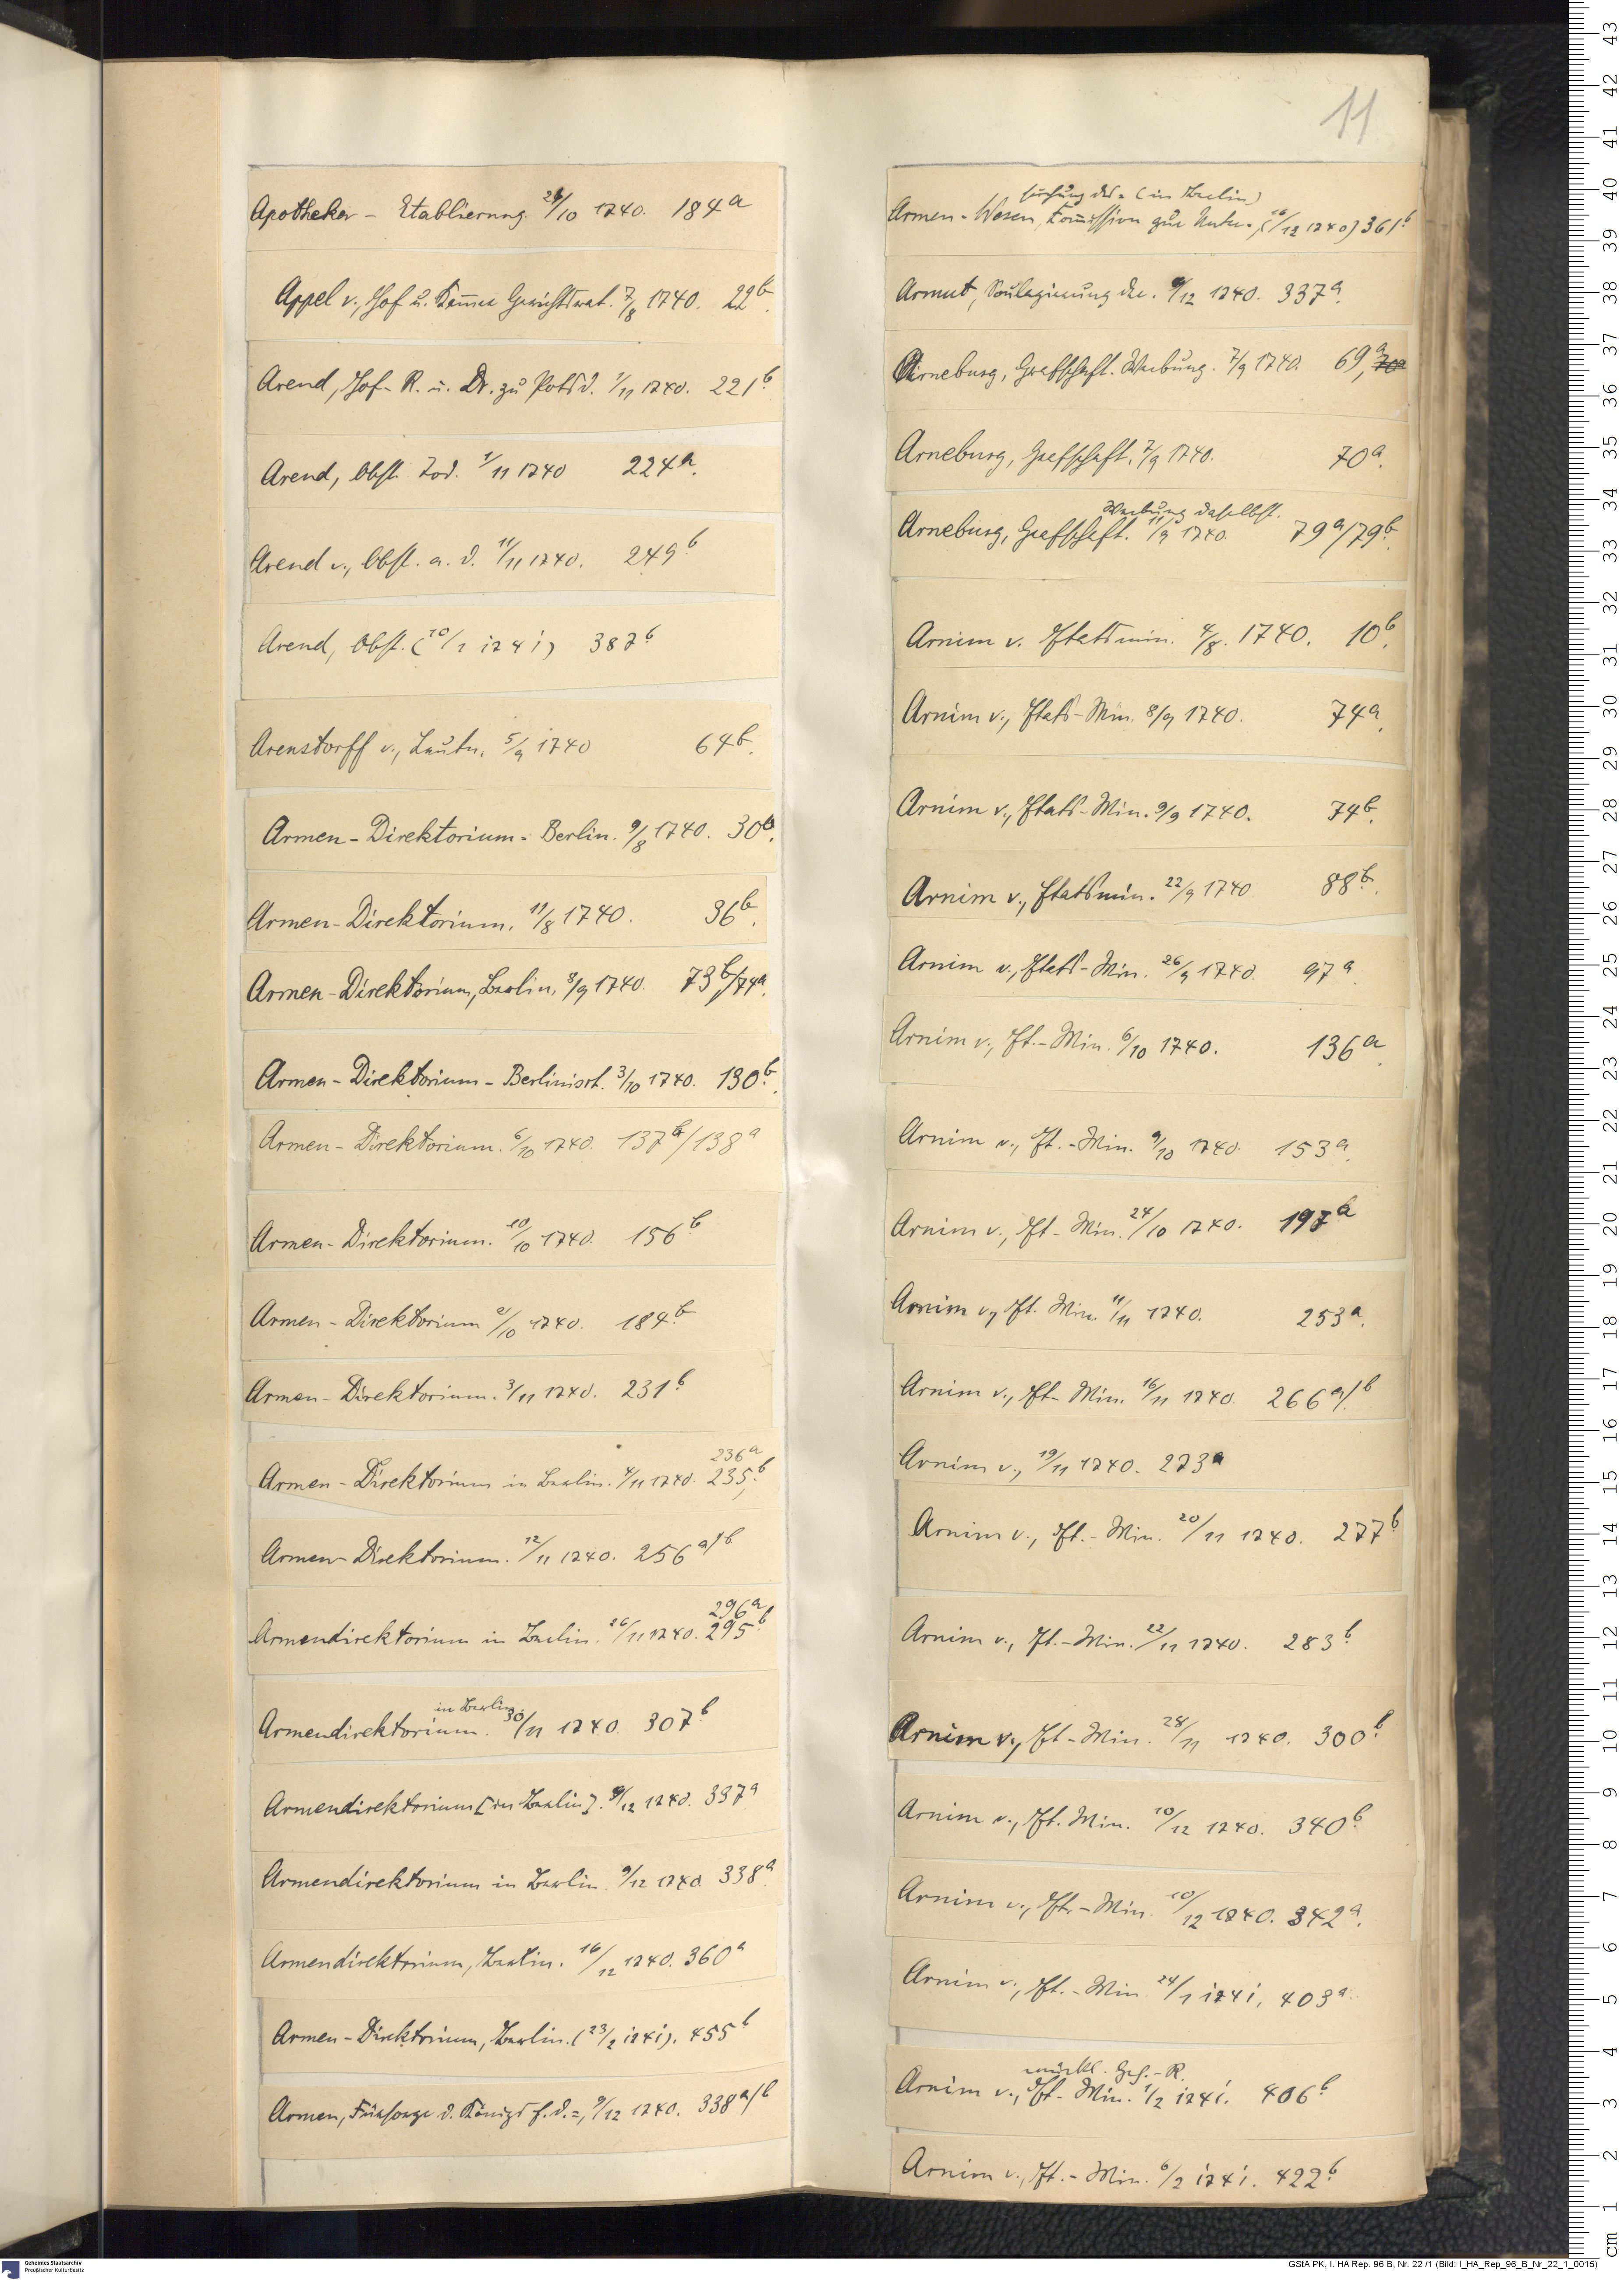 11
Apotheker - Etablierung. 26/10 1740. 184a
Appel v., Hof u. Kammer Gerichtsrat. 7/8 1740. 22b.
Arend, Hof- R. u. Dr. zu Potsd. 1/11 1740. 221b
Arend, Obst. Tod. 1/11 1740 224a.
Arend v., Obst. a. D. 11/11 1740. 249b
Arend, Obst. (10/1 1741) 387b
Arenstorff v., Leutn. 5/9 1740 64b.
Armen-Direktorium- Berlin. 9/8 1740. 30b.
Armen-Direktorium. 11/8 1740. 36b.
Armen-Direktorium, Berlin. 8/9 1740. 73b/74a.
Armen-Direktorium-Berlinisch. 3/10 1740. 130b.
Armen-Direktorium. 6/10 1740. 137b/138a
Armen-Direktorium. 10/10 1740. 156b
Armen-Direktorium /10 1740. 184b
Armen-Direktorium. 3/11 1740. 231b
236a
Armen-Direktorium in Berlin. 4/11 1740. 235b,
Armen-Direktorium. 12/11 1740. 256a/b
296a
Armendirektorium in Berlin. 26/11 1740. 295b
in Berlin
Armendirektorium. 30/11 1740. 307b
Armendirektorium [in Berlin]. 9/12 1740. 337a
Armendirektorium in Berlin. 9/12 1740. 338a
Armendirektorium, Berlin. 16/12 1740. 360a
Armen-Direktorium, Berlin. (23/2 1741). 455b
Armen, Fürsorge d. Königs f. d. =, 9/12 1740. 338a/b
suchung des = (in Berlin)
Armen-Wesen, Kommission zur Unter- (16/12 1740) 361b
Armut, der. 9/12 1740. 337a.
Arneburg, Grafschaft. Werbung. 7/9 1740. 69a, 70a
Arneburg, Grafschaft. 7/9 1740. 70a.
Werbung daselbst.
Arneburg, Grafschaft. 11/9 1740. 79a/79b.
Arnim v. Etatsmin. 4/8. 1740. 10b.
Arnim v., Etats-Min. 8/9 1740. 74a.
Arnim v., Etats-Min. 9/9 1740. 74b.
Arnim v., Etatsmin. 22/9 1740 88b.
Arnim v., Etats-Min. 26/9 1740. 97a.
Arnim v., Et.-Min. 6/10 1740. 136a.
Arnim v., Et.-Min. 9/10 1740. 153a.
Arnim v., Et-Min. 24/10 1740. 197a
Arnim v., Et. Min. 11/11 1740. 253a.
Arnim v., Et-Min. 16/11 1740. 266a/b
Arnim v., 19/11 1740. 273a
Arnim v., Et.-Min. 20/11 1740. 277b
Arnim v., Et.-Min. 22/11 1740. 283b
Arnim v., Et-Min. 28/11 1740. 300b
Arnim v., Et. Min. 10/12 1740. 340b
Arnim v., Et.-Min. 10/12 1740. 342a.
Arnim v., Et.-Min. 24/1 1741. 403a.
wirkl. Geh.-R.
Arnim v., Et-Min. 1/2 1741. 406b
Arnim v., Et.-Min. 6/2 1741. 422b
Geheimes Staatsarchiv
Preußischer Kulturbesitz
GStA PK, I. HA Rep. 96 B, Nr. 22 /1 (Bild: I_HA_Rep_96_B_Nr_22_1_0015)
cm 1 2 3 4 5 6 7 8 9 10 11 12 13 14 15 16 17 18 19 20 21 22 23 24 25 26 27 28 29 30 31 32 33 34 35 36 37 38 39 40 41 42 43